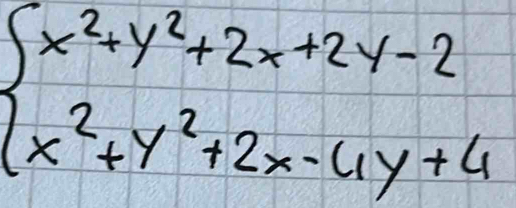 x²+y²+2x+2y-2
x²+y²+2x-4y+4